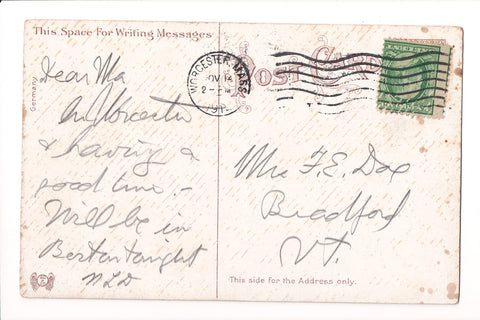 This Space For Writing Messages
POST CARD
WORCESTER, MASS.
NOV 14
2 - PM
191
Germany
Dear Ma
In Worcester
& having a
good time -
Will be in
Boston tonight
NLD
Mrs F. E. Doe
Bradford
Vt.
This side for the Address only.